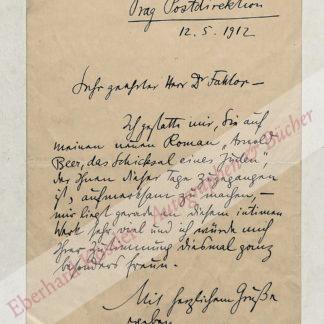 Prag Postdirektion
12. 5. 1912
Sehr geehrter Herr Dr Faktor –
Ich gestatte mir, Sie auf
meinen neuen Roman „Arnold
Beer, das Schicksal eines Juden",
der Ihnen dieser Tage zugegangen
ist, aufmerksam zu machen, –
mir liegt gerade an diesem intimen
Werk sehr viel und ich würde mich
Ihrer Zustimmung diesmal ganz
besonders freun. –
Mit herzlichem Gruße
ergeben
Eberhard Köstler Autographen & Bücher